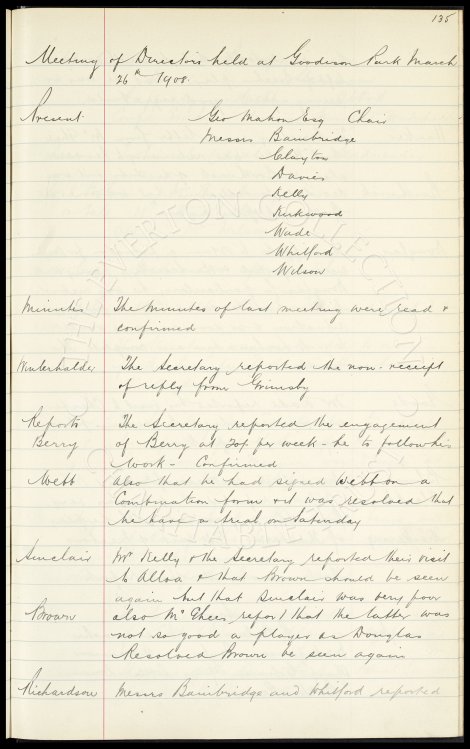 135
Meeting of Directors held at Goodison Park March
26th 1908.
Present Geo Mahon Esq Chair
Messrs Bainbridge
Clayton
Davies
Kelly
Kirkwood
Wade
Whitford
Wilson
Minutes The minutes of last meeting were read &
confirmed
Winterhalder The Secretary reported the non-receipt
of reply from Grimsby
Reports The Secretary reported the engagement
Berry of Berry at 20/- per week - he to follow his
work - Confirmed
Webb Also that he had signed Webb on a
Combination form & it was resolved that
he have a trial on Saturday
Sinclair Mr Kelly & the Secretary reported their visit
to Alloa & that Brown should be seen
again but that Sinclair was very poor
Brown also Mr report that the latter was
not so good a player as Douglas
Resolved Brown be seen again
Richardson Messrs Bainbridge and Whitford reported
THE EVERTON COLLECTION
CHARITABLE